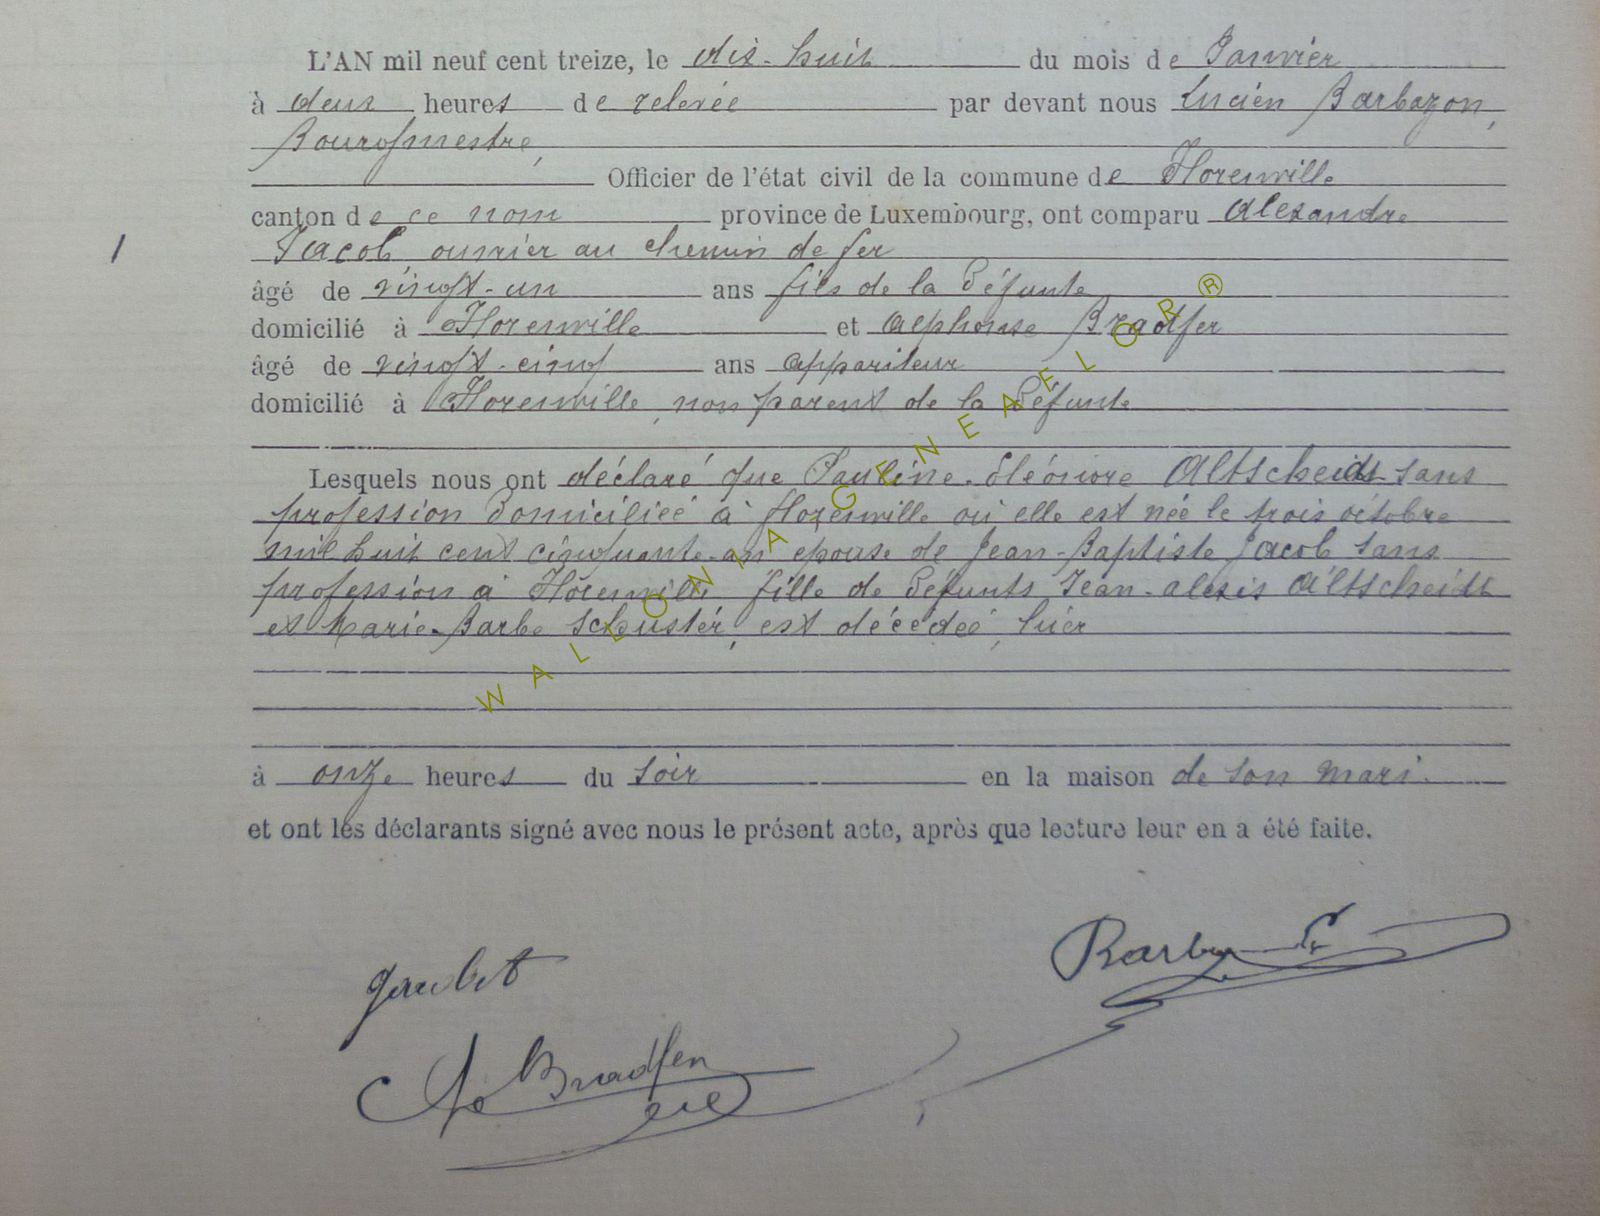 L'AN mil neuf cent treize, le dix-huit du mois de Janvier
à deux heures de relevée par devant nous Lucien Barbazon,
Bourgmestre,
Officier de l'état civil de la commune de Florenville
canton de ce nom province de Luxembourg, ont comparu Alexandre
1 Jacob ouvrier au chemin de fer
âgé de vingt-un ans fils de la Défunte
domicilié à Florenville et Alphonse Bradfer
âgé de vingt-cinq ans appariteur
domicilié à Florenville, non parent de la Défunte
Lesquels nous ont déclaré que Pauline-Eléonore Altscheidt sans
profession domiciliée à Florenville où elle est née le trois octobre
mil huit cent cinquante-un épouse de Jean-Baptiste Jacob sans
profession à Florenville fille de Défunts Jean-Alexis Altscheidt
et Marie-Barbe Schuster, est décédée, hier
à onze heures du soir en la maison de son mari.
et ont les déclarants signé avec nous le présent acte, après que lecture leur en a été faite.
Bradfer
WALLONIA GENEAFLOR ®